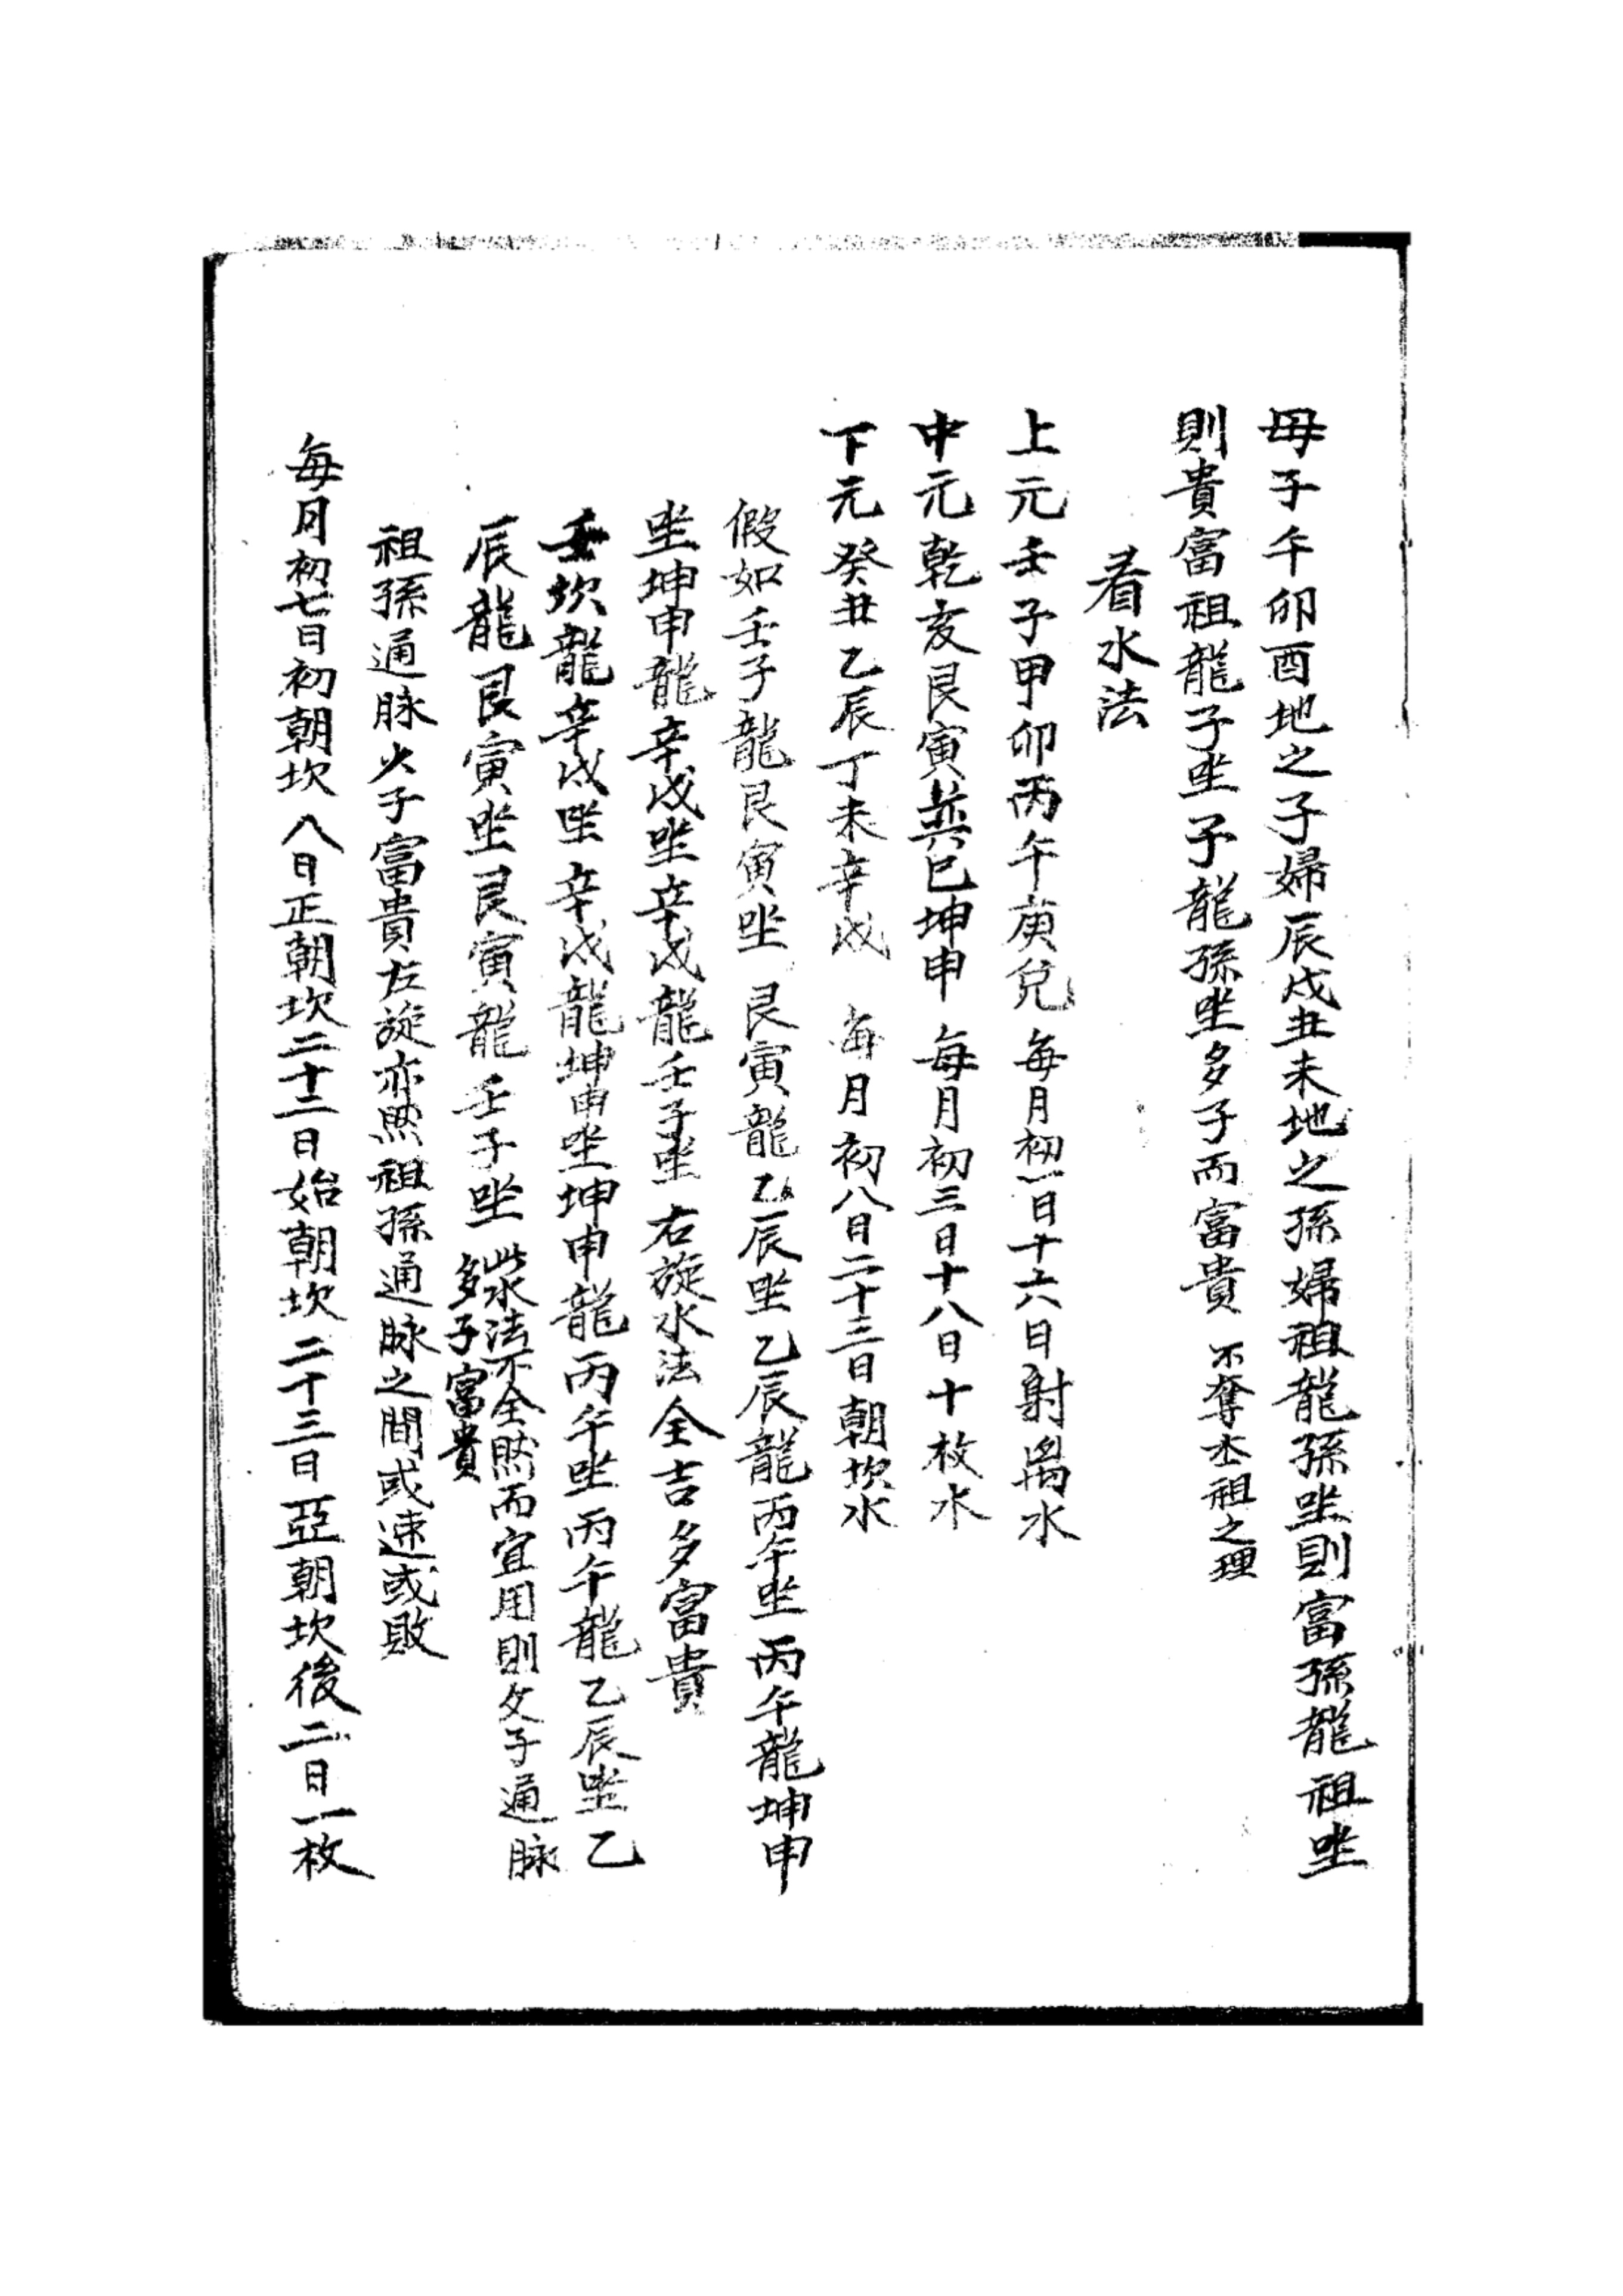 母子午卯酉地之子婦辰戌丑未地之孫婦祖龍孫坐則富孫龍祖坐
則貴富祖龍子坐子龍孫坐多子而富貴 不奪本祖之理
看水法
上元壬子甲卯丙午庚兌 每月初一日十六日射禹水
中元乾亥艮寅巽巳坤申 每月初三日十八日十枚水
下元癸丑乙辰丁未辛戌 每月初八日二十三日朝坎水
假如壬子龍艮寅坐 艮寅龍乙辰坐乙辰龍丙午坐丙午龍坤申
坐坤申龍辛戌坐辛戌龍壬子坐 右旋水法全吉多富貴
壬坎龍辛戌坐辛戌龍坤申坐坤申龍丙午坐丙午龍乙辰坐乙
辰龍艮寅坐艮寅龍壬子坐 此水法不全然而宜用則父子通脉
多子富貴
祖孫通脉火子富貴左旋亦然祖孫通脉之間或速或敗
每月初七日初朝坎 八日正朝坎二十二日始朝坎 二十三日亞朝坎後二日一枚